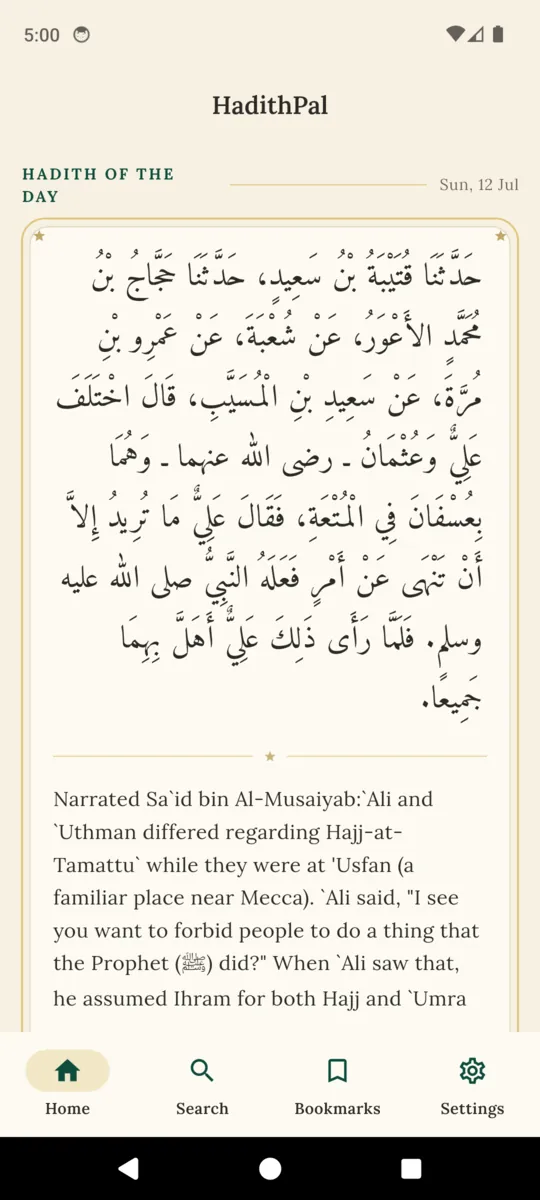 5:00
HadithPal
HADITH OF THE
DAY
Sun, 12 Jul
حَدَّثَنَا قُتَيْبَةُ بْنُ سَعِيدٍ، حَدَّثَنَا حَجَّاجُ بْنُ
مُحَمَّدٍ الأَعْوَرُ، عَنْ شُعْبَةَ، عَنْ عَمْرِو بْنِ
مُرَّةَ، عَنْ سَعِيدِ بْنِ الْمُسَيَّبِ، قَالَ اخْتَلَفَ
عَلِيٌّ وَعُثْمَانُ ـ رضى الله عنهما ـ وَهُمَا
بِعُسْفَانَ فِي الْمُتْعَةِ، فَقَالَ عَلِيٌّ مَا تُرِيدُ إِلاَّ
أَنْ تَنْهَى عَنْ أَمْرٍ فَعَلَهُ النَّبِيُّ صلى الله عليه
وسلم‏.‏ فَلَمَّا رَأَى ذَلِكَ عَلِيٌّ أَهَلَّ بِهِمَا
جَمِيعًا‏.‏
Narrated Sa`id bin Al-Musaiyab:`Ali and
`Uthman differed regarding Hajj-at-
Tamattu` while they were at 'Usfan (a
familiar place near Mecca). `Ali said, "I see
you want to forbid people to do a thing that
the Prophet (ﷺ) did?" When `Ali saw that,
he assumed Ihram for both Hajj and `Umra
Home
Search
Bookmarks
Settings